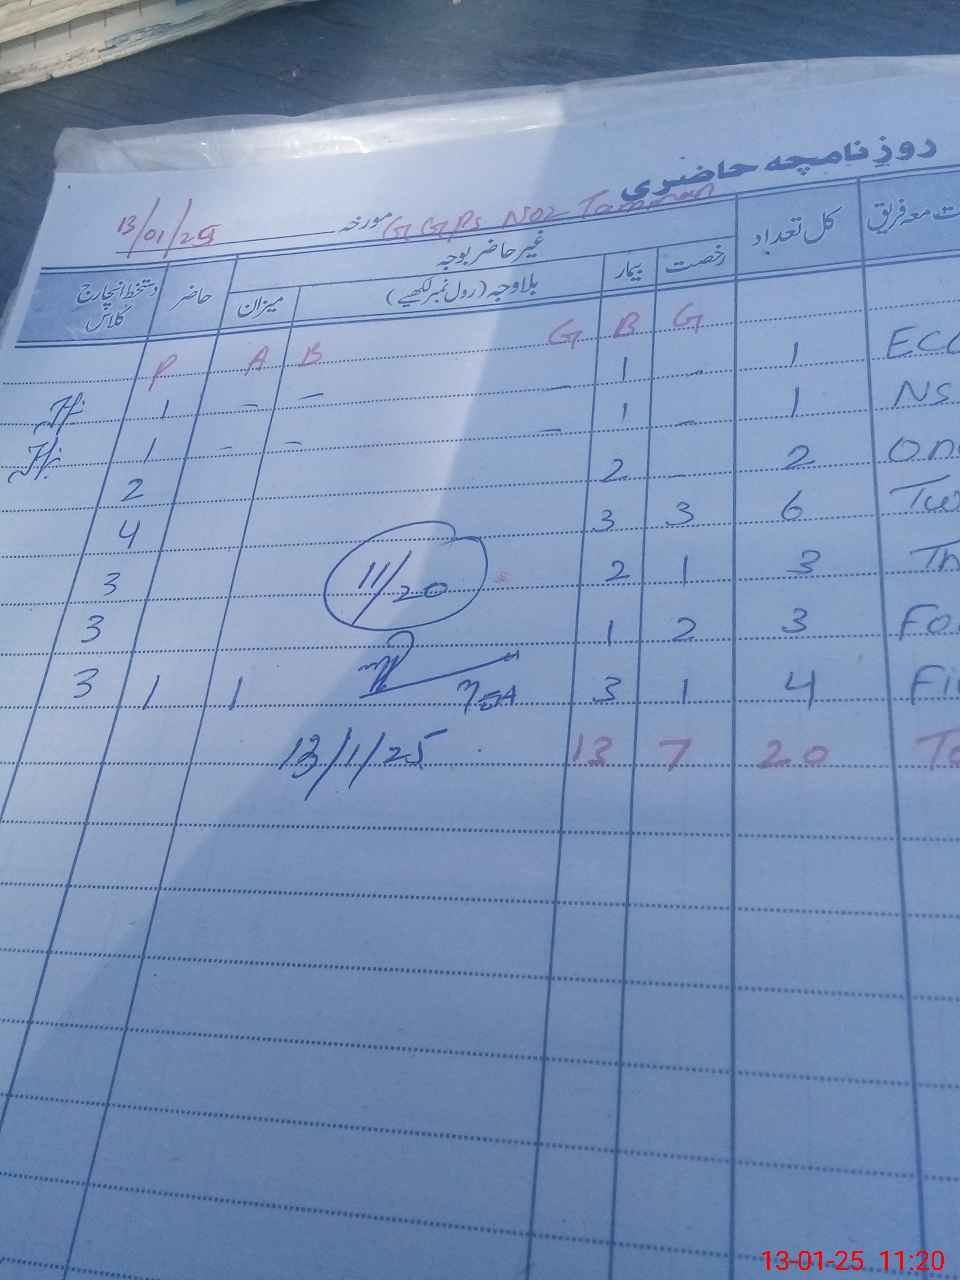 روزنامچہ حاضری
مورخہ 13/01/25
GGPS No2 Tamman
کل تعداد غیر حاضر بوجہ حاضر دستخط انچارج کلاس
رخصت بیمار بلاوجہ (رول نمبر لکھیے) میزان
G B G B A P
ECC 1 - 1 - - - 1
NS 1 - 1 - - - 1
2 - 2 2
6 3 3 4
3 1 2 3
3 2 1 3
4 1 3 1 1 3
20 7 13
11/20
13/1/25
13-01-25 11:20